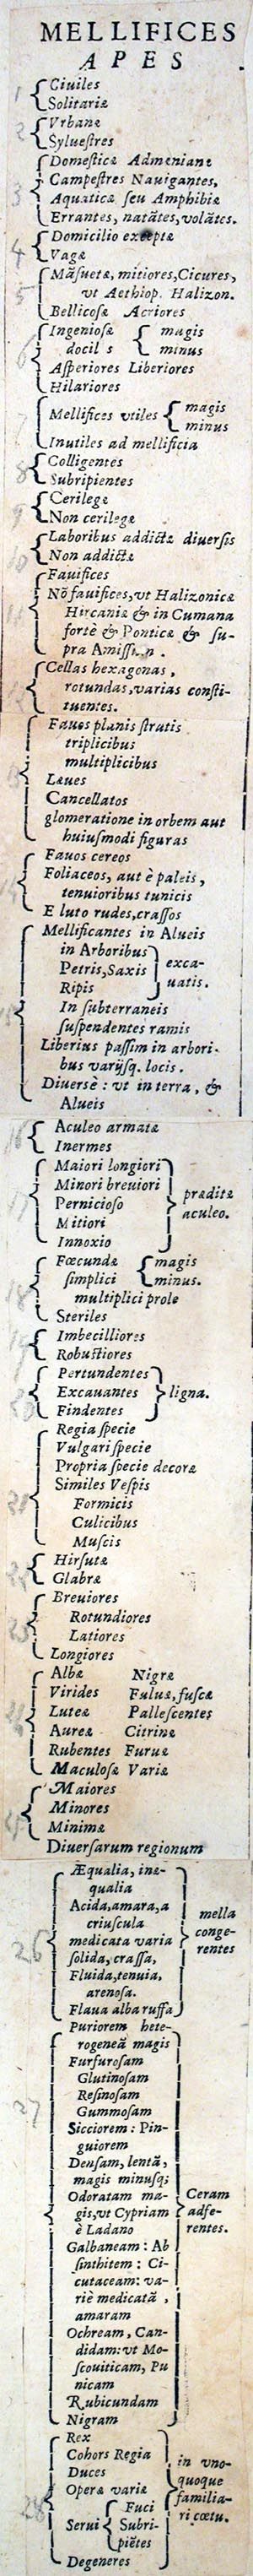 MELLIFICES
APES
1 Ciuiles
Solitariæ
2 Vrbanæ
Sylueſtres
Domeſticæ Admeniane
3 Campeſtres Nauigantes,
Aquaticæ ſeu Amphibiæ
Errantes, natātes, volātes.
4 Domicilio exceptæ
Vagæ
5 Māſuetæ, mitiores, Cicures,
vt Aethiop. Halizon.
Bellicoſæ Acriores
6 Ingenioſæ magis
docil s minus
Aſperiores Liberiores
Hilariores
7 Mellifices vtiles magis
minus
Inutiles ad mellificia
8 Colligentes
Subripientes
9 Cerilegæ
Non cerilegæ
10 Laboribus addictæ diuerſis
Non addictæ
Fauifices
11 Nō fauifices, vt Halizonicæ
Hircaniæ & in Cumana
fortè & Ponticæ & ſu-
pra Amiſſum.
12 Cellas hexagonas,
rotundas, varias conſti-
tuentes.
Fauos planis ſtratis
triplicibus
13 multiplicibus
Læues
Cancellatos
glomeratione in orbem aut
huiuſmodi figuras
14 Fauos cereos
Foliaceos, aut è paleis,
tenuioribus tunicis
E luto rudes, craſſos
Mellificantes in Alueis
in Arboribus
Petris, Saxis exca-
Ripis uatis.
15 In ſubterraneis
ſuſpendentes ramis
Liberius paſſim in arbori-
bus varijſq. locis.
Diuerſè : vt in terra, &
Alueis
16 Aculeo armatæ
Inermes
Maiori longiori
Minori breuiori
17 Pernicioſo præditæ
Mitiori aculeo.
Innoxio
Fœcundæ magis
18 ſimplici minus.
multiplici prole
Steriles
19 Imbecilliores
Robuſtiores
20 Pertundentes
Excauantes ligna.
Findentes
Regia ſpecie
Vulgari ſpecie
Propria ſpecie decoræ
21 Similes Veſpis
Formicis
Culicibus
Muſcis
22 Hirſutæ
Glabræ
Breuiores
23 Rotundiores
Latiores
Longiores
Albæ Nigræ
Virides Fuluæ, fuſcæ
24 Luteæ Palleſcentes
Aureæ Citrinæ
Rubentes Furuæ
Maculoſæ Variæ
25 Maiores
Minores
Minimæ
Diuerſarum regionum
Æqualia, inæ-
qualia
Acida, amara, a
criuſcula mella
26 medicata varia conge-
ſolida, craſſa, rentes
Fluida, tenuia,
arenoſa.
Flaua alba ruffa
Puriorem hete-
rogeneā magis
Furfuroſam
Glutinoſam
27 Reſinoſam
Gummoſam
Sicciorem : Pin-
guiorem
Denſam, lentā,
magis minuſq;
Odoratam ma- Ceram
gis, vt Cypriam adfe-
è Ladano rentes.
Galbaneam : Ab
ſinthitem : Ci-
cutaceam: va-
riè medicatā,
amaram
Ochream, Can-
didam: vt Mo-
ſcouiticam, Pu
nicam
Rubicundam
Nigram
Rex
Cohors Regia in vno-
Duces quoque
Operæ variæ familia-
28 Fuci ri cœtu.
Serui Subri-
piētes
Degeneres